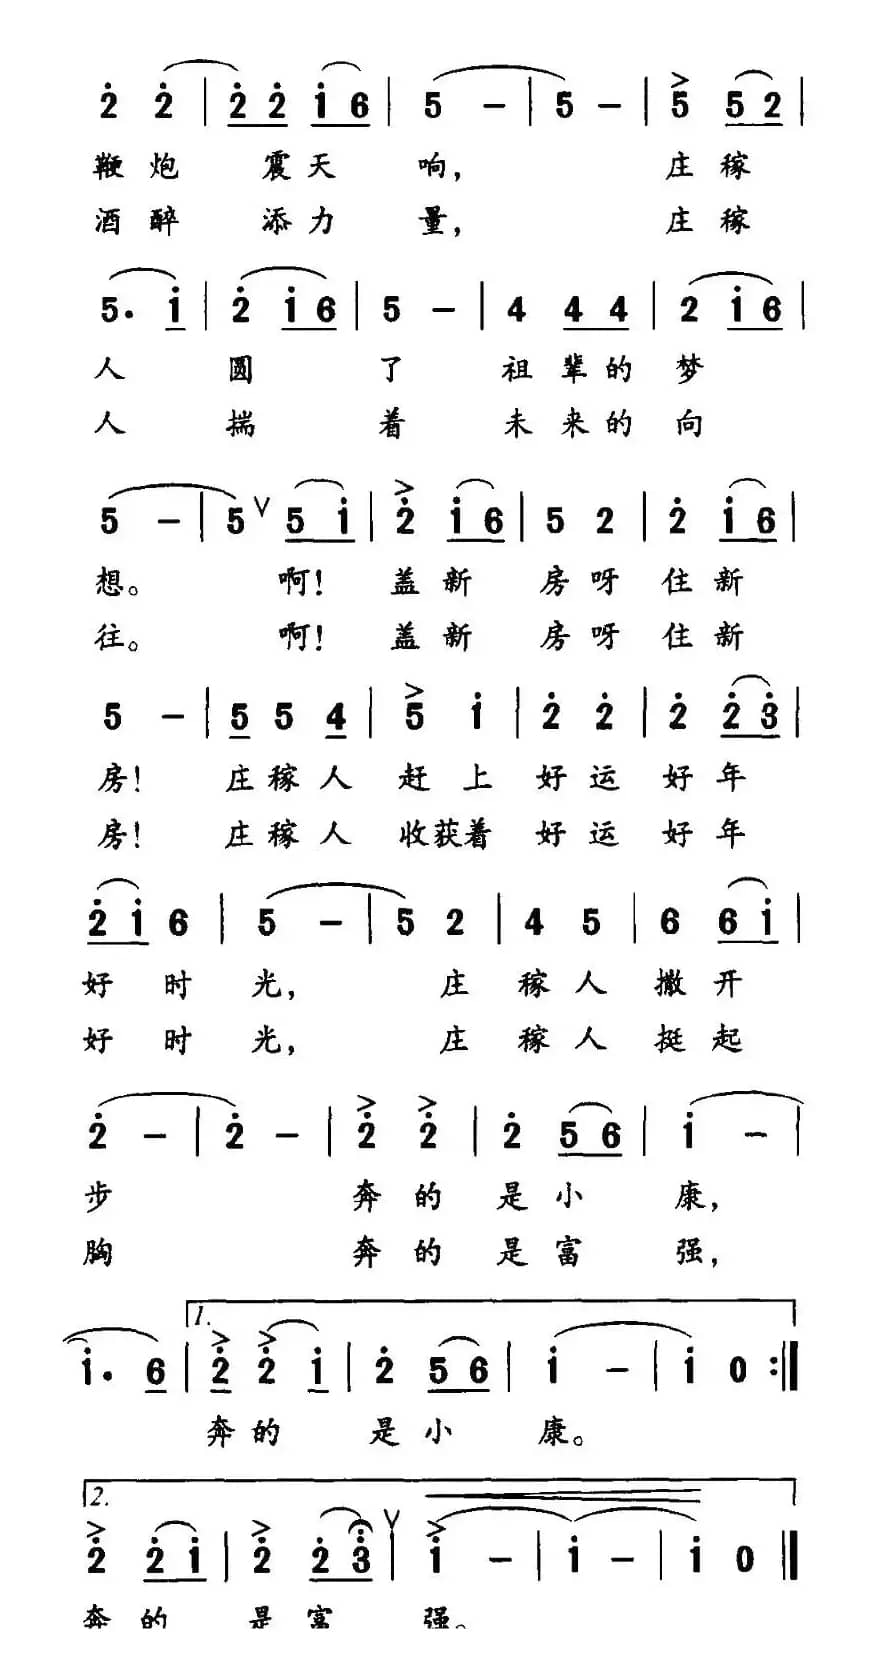 2̇ 2̇ | 2̇ 2̇ 1̇ 6 | 5 - | 5 - | 5 5 2 |
鞭炮 震天 响， 庄稼
酒醉 添力 量， 庄稼
5. 1̇ | 2̇ 1̇ 6 | 5 - | 4 4 4 | 2 1̇ 6 |
人 圆 了 祖辈的梦
人 揣 着 未来的向
5 - | 5 ∨ 5 1̇ | 2̇ 1̇ 6 | 5 2 | 2̇ 1̇ 6 |
想。 啊！ 盖新 房呀 住新
往。 啊！ 盖新 房呀 住新
5 - | 5 5 4 | 5 1̇ | 2̇ 2̇ | 2̇ 2̇ 3̇ |
房！ 庄稼人 赶上 好运 好年
房！ 庄稼人 收获着 好运 好年
2̇ 1̇ 6 | 5 - | 5 2 | 4 5 | 6 6 1̇ |
好时 光， 庄 稼人 撒开
好时 光， 庄 稼人 挺起
2̇ - | 2̇ - | 2̇ 2̇ | 2̇ 5 6 | 1̇ - |
步 奔的 是小 康，
胸 奔的 是富 强，
1.
1̇. 6 | 2̇ 2̇ 1̇ | 2̇ 5 6 | 1̇ - | 1̇ 0 :‖
奔的 是小 康。
2.
2̇ 2̇ 1̇ | 2̇ 2̇ 3̇ ∨ | 1̇ - | 1̇ - | 1̇ 0 ‖
奔的 是富 强。